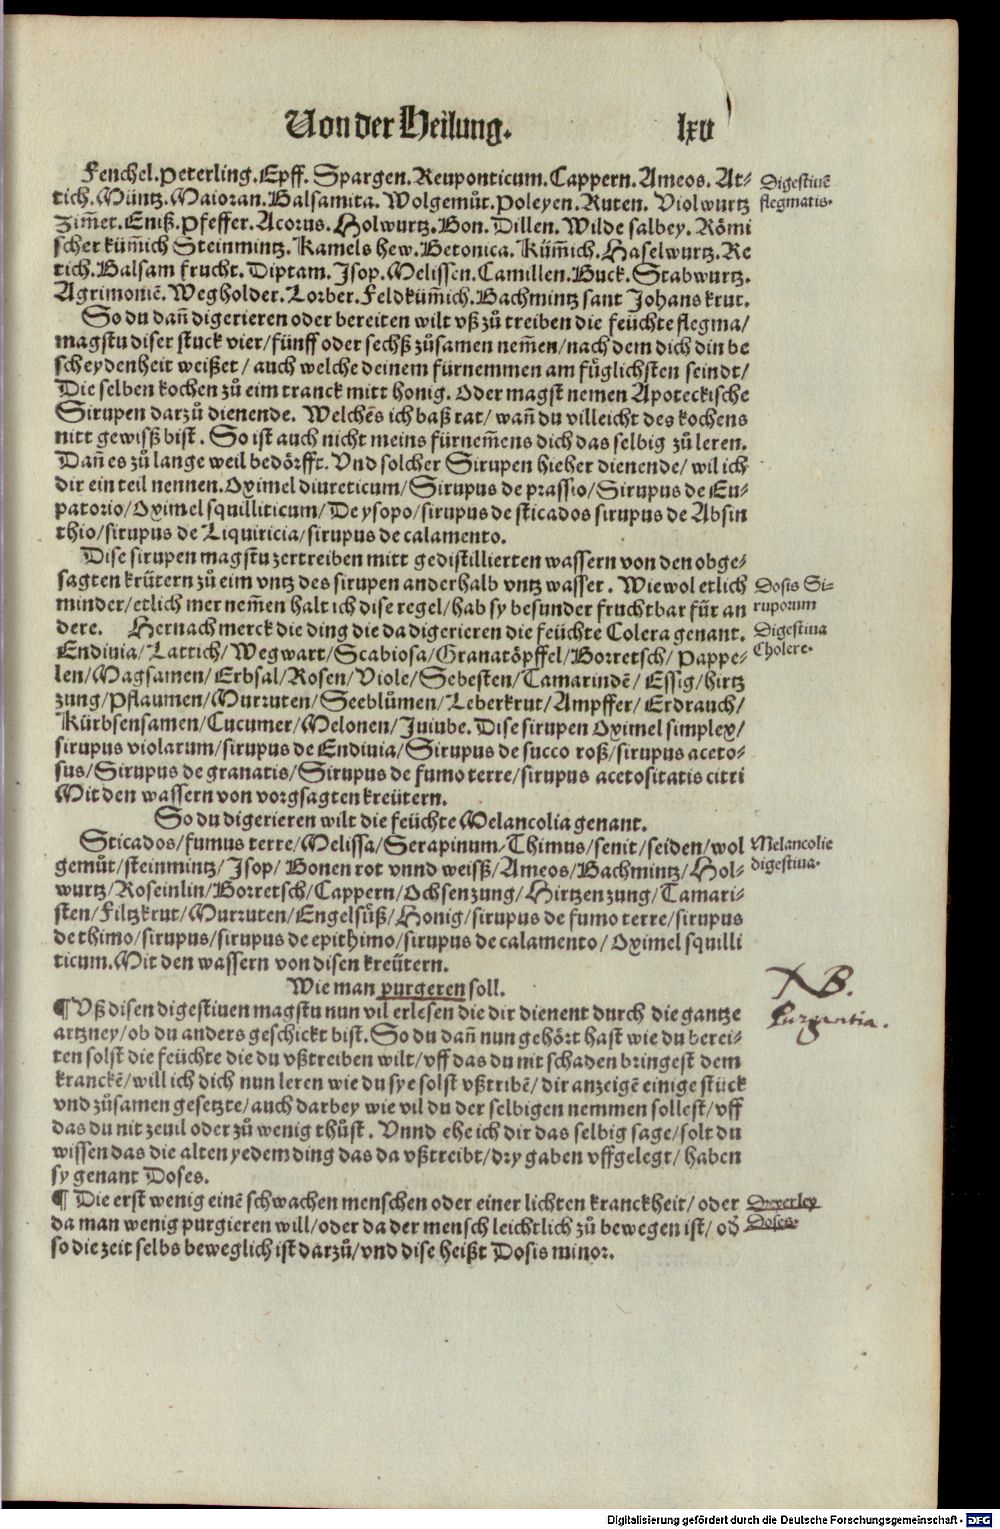 Von der Heilung. lxv
Fenchel. Peterling. Epff. Spargen. Reuponticum. Cappern. Ameos. At⸗
tich. Müntz. Maioran. Balsamita. Wolgemůt. Poleyen. Ruten. Violwurtz
Zim̃et. Eniß. Pfeffer. Acorus. Holwurtz. Bon. Dillen. Wilde salbey. Rômi
scher küm̃ich Steinmintz. Kamels hew. Betonica. Küm̃ich. Haselwurtz. Re
tich. Balsam frucht. Diptam. Isop. Melissen. Camillen. Buck. Stabwurtz.
Agrimoniẽ. Wegholder. Lorber. Feldküm̃ich. Bachmintz sant Johans krut.
Digestiuẽ
flegmatis.
So du dañ digerieren oder bereiten wilt vß zů treiben die feüchte flegma/
magstu diser stuck vier/fünff oder sechß zůsamen nem̃en/nach dem dich din be
scheydenheit weißet/ auch welche deinem fürnemmen am füglichsten seindt/
Die selben kochen zů eim tranck mitt honig. Oder magst nemen Apoteckische
Sirupen darzů dienende. Welchẽs ich baß rat/ wañ du villeicht des kochens
nitt gewisß bist. So ist auch nicht meins fürnem̃ens dich das selbig zů leren.
Dañ es zů lange weil bedôrfft. Vnd solcher Sirupen hieher dienende/ wil ich
dir ein teil nennen. Oximel diureticum/ Sirupus de prassio/ Sirupus de Eu⸗
patorio/ Oximel squilliticum/ De ysopo/ sirupus de sticados sirupus de Absin
thio/ sirupus de Liquiricia/ sirupus de calamento.
Dise sirupen magstu zertreiben mitt gedistillierten wassern von den obge⸗
sagten krütern zů eim vntz des sirupen anderhalb vntz wasser. Wiewol etlich
minder/ etlich mer nem̃en halt ich dise regel/ hab sy besunder fruchtbar für an
dere. Hernach merck die ding die da digerieren die feüchte Colera genant.
Dosis Si⸗
ruporum
Digestiua
Cholere.
Endiuia/ Lattich/ Wegwart/ Scabiosa/ Granatöpffel/ Borretsch/ Pappe⸗
len/ Magsamen/ Erbsal/ Rosen/ Viole/ Sebesten/ Tamarindẽ/ Essig/ hirtz
zung/ Pflaumen/ Murruten/ Seeblůmen/ Leberkrut/ Ampffer/ Erdrauch/
Kürbsensamen/ Cucumer/ Melonen/ Juiube. Dise sirupen Oximel simplex/
sirupus violarum/ sirupus de Endiuia/ Sirupus de succo roß/ sirupus aceto⸗
sus/ Sirupus de granatis/ Sirupus de fumo terre/ sirupus acetositatis citri
Mit den wassern von vorgsagten kreütern.
So du digerieren wilt die feüchte Melancolia genant.
Sticados/ fumus terre/ Melissa/ Serapinum/ Thimus/ senit/ seiden/ wol
gemůt/ steinmintz/ Isop/ Bonen rot vnnd weisß/ Ameos/ Bachmintz/ Hol⸗
wurtz/ Roseinlin/ Borretsch/ Cappern/ Ochsenzung/ Hirtzenzung/ Tamari⸗
sten/ Filtzkrut/ Murruten/ Engelsůß/ Honig/ sirupus de fumo terre/ sirupus
de thimo/ sirupus/ sirupus de epithimo/ sirupus de calamento/ Oximel squilli
ticum. Mit den wassern von disen kreütern.
Melancolie
digestiua.
Wie man purgeren soll.
NB.
Purgantia.
¶ Vß disen digestiuen magstu nun vil erlesen die dir dienent durch die gantze
artzney/ ob du anders geschickt bist. So du dañ nun gehört hast wie du berei⸗
ten solst die feüchte die du vßtreiben wilt/ vff das du nit schaden bringest dem
kranckẽ/ will ich dich nun leren wie du sye solst vßtribẽ/ dir anzeigẽ einige stück
vnd zůsamen gesetzte/ auch darbey wie vil du der selbigen nemmen sollest/ vff
das du nit zeuil oder zů wenig thůst. Vnnd ehe ich dir das selbig sage/ solt du
wissen das die alten yedem ding das da vßtreibt/ dry gaben vffgelegt/ haben
sy genant Doses.
¶ Die erst wenig einẽ schwachen menschen oder einer lichten kranckheit/ oder
da man wenig purgieren will/ oder da der mensch leichtlich zů bewegen ist/ od̃
so die zeit selbs beweglich ist darzů/ vnd dise heißt Dosis minor.
Dreyerley
Doses.
Digitalisierung gefördert durch die Deutsche Forschungsgemeinschaft - DFG